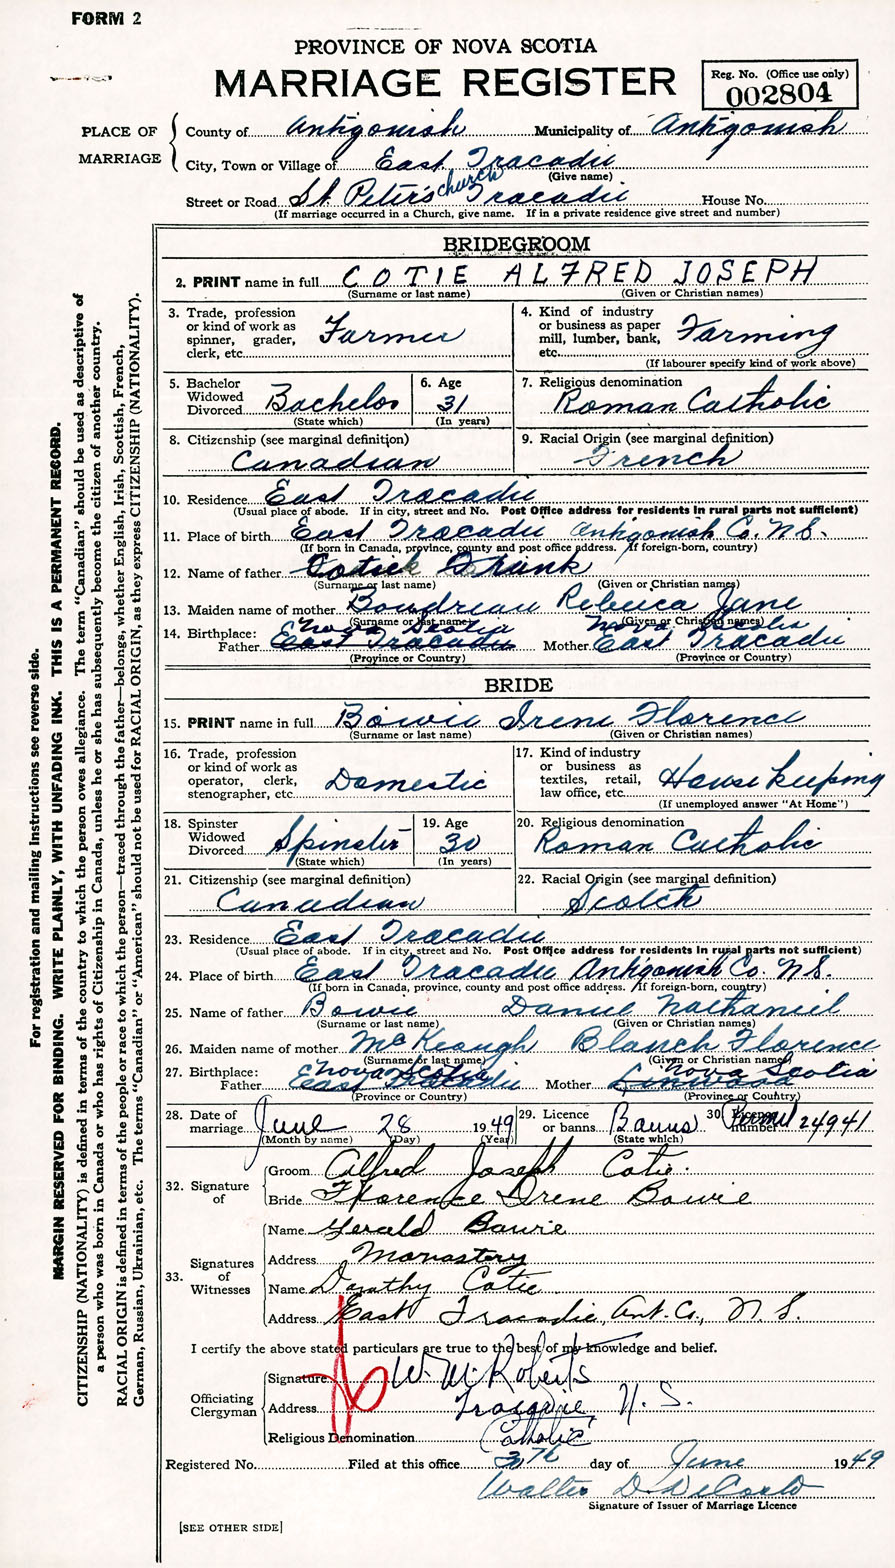 FORM 2
PROVINCE OF NOVA SCOTIA
MARRIAGE REGISTER
Reg. No. (Office use only)
002804
PLACE OF MARRIAGE
County of Antigonish Municipality of Antigonish
City, Town or Village of East Tracadie
(Give name)
Street or Road St. Peter's church Tracadie House No.
(If marriage occurred in a Church, give name. If in a private residence give street and number)
BRIDEGROOM
2. PRINT name in full COTIE ALFRED JOSEPH
(Surname or last name) (Given or Christian names)
3. Trade, profession or kind of work as spinner, grader, clerk, etc. Farmer
4. Kind of industry or business as paper mill, lumber, bank, etc. Farming
(If labourer specify kind of work above)
5. Bachelor Widowed Divorced Bachelor
(State which)
6. Age 31
(In years)
7. Religious denomination
Roman Catholic
8. Citizenship (see marginal definition)
Canadian
9. Racial Origin (see marginal definition)
French
10. Residence East Tracadie
(Usual place of abode. If in city, street and No. Post Office address for residents in rural parts not sufficient)
11. Place of birth East Tracadie Antigonish Co. N.S.
(If born in Canada, province, county and post office address. If foreign-born, country)
12. Name of father Frank
(Surname or last name) (Given or Christian names)
13. Maiden name of mother Boudreau Rebecca Jane
(Surname or last name) (Given or Christian names)
14. Birthplace: Nova Scotia Nova Scotia
Father East Tracadie Mother East Tracadie
(Province or Country) (Province or Country)
BRIDE
15. PRINT name in full Bowie Irene Florence
(Surname or last name) (Given or Christian names)
16. Trade, profession or kind of work as operator, clerk, stenographer, etc. Domestic
17. Kind of industry or business as textiles, retail, law office, etc. House keeping
(If unemployed answer "At Home")
18. Spinster Widowed Divorced Spinster
(State which)
19. Age 30
(In years)
20. Religious denomination
Roman Catholic
21. Citizenship (see marginal definition)
Canadian
22. Racial Origin (see marginal definition)
Scotch
23. Residence East Tracadie
(Usual place of abode. If in city, street and No. Post Office address for residents in rural parts not sufficient)
24. Place of birth East Tracadie Antigonish Co. N.S.
(If born in Canada, province, county and post office address. If foreign-born, country)
25. Name of father Bowie Daniel Nathaniel
(Surname or last name) (Given or Christian names)
26. Maiden name of mother McKeough Blanch Florence
(Surname or last name) (Given or Christian names)
27. Birthplace: Nova Scotia Nova Scotia
Father East Tracadie Mother Linwood
(Province or Country) (Province or Country)
28. Date of marriage June 28 1949
(Month by name) (Day) (Year)
29. Licence or banns Banns
(State which)
30. Licence number Permit 24941
32. Signature of
Groom Alfred Joseph Cotie.
Bride Florence Irene Bowie
33. Signatures of Witnesses
Name Gerald Bowie
Address Monastery
Name Dorothy Cotie
Address East Tracadie, Ant. Co., N.S.
I certify the above stated particulars are true to the best of my knowledge and belief.
Officiating Clergyman
Signature W. M. Roberts
Address Tracadie, N.S.
Religious Denomination Catholic
Registered No. Filed at this office 30th day of June 1949
Walter D DeCoste
Signature of Issuer of Marriage Licence
[SEE OTHER SIDE]
For registration and mailing Instructions see reverse side.
MARGIN RESERVED FOR BINDING. WRITE PLAINLY, WITH UNFADING INK. THIS IS A PERMANENT RECORD.
CITIZENSHIP (NATIONALITY) is defined in terms of the country to which the person owes allegiance. The term "Canadian" should be used as descriptive of
a person who was born in Canada or who has rights of Citizenship in Canada, unless he or she has subsequently become the citizen of another country.
RACIAL ORIGIN is defined in terms of the people or race to which the person—traced through the father—belongs, whether English, Irish, Scottish, French,
German, Russian, Ukrainian, etc. The terms "Canadian" or "American" should not be used for RACIAL ORIGIN, as they express CITIZENSHIP (NATIONALITY).